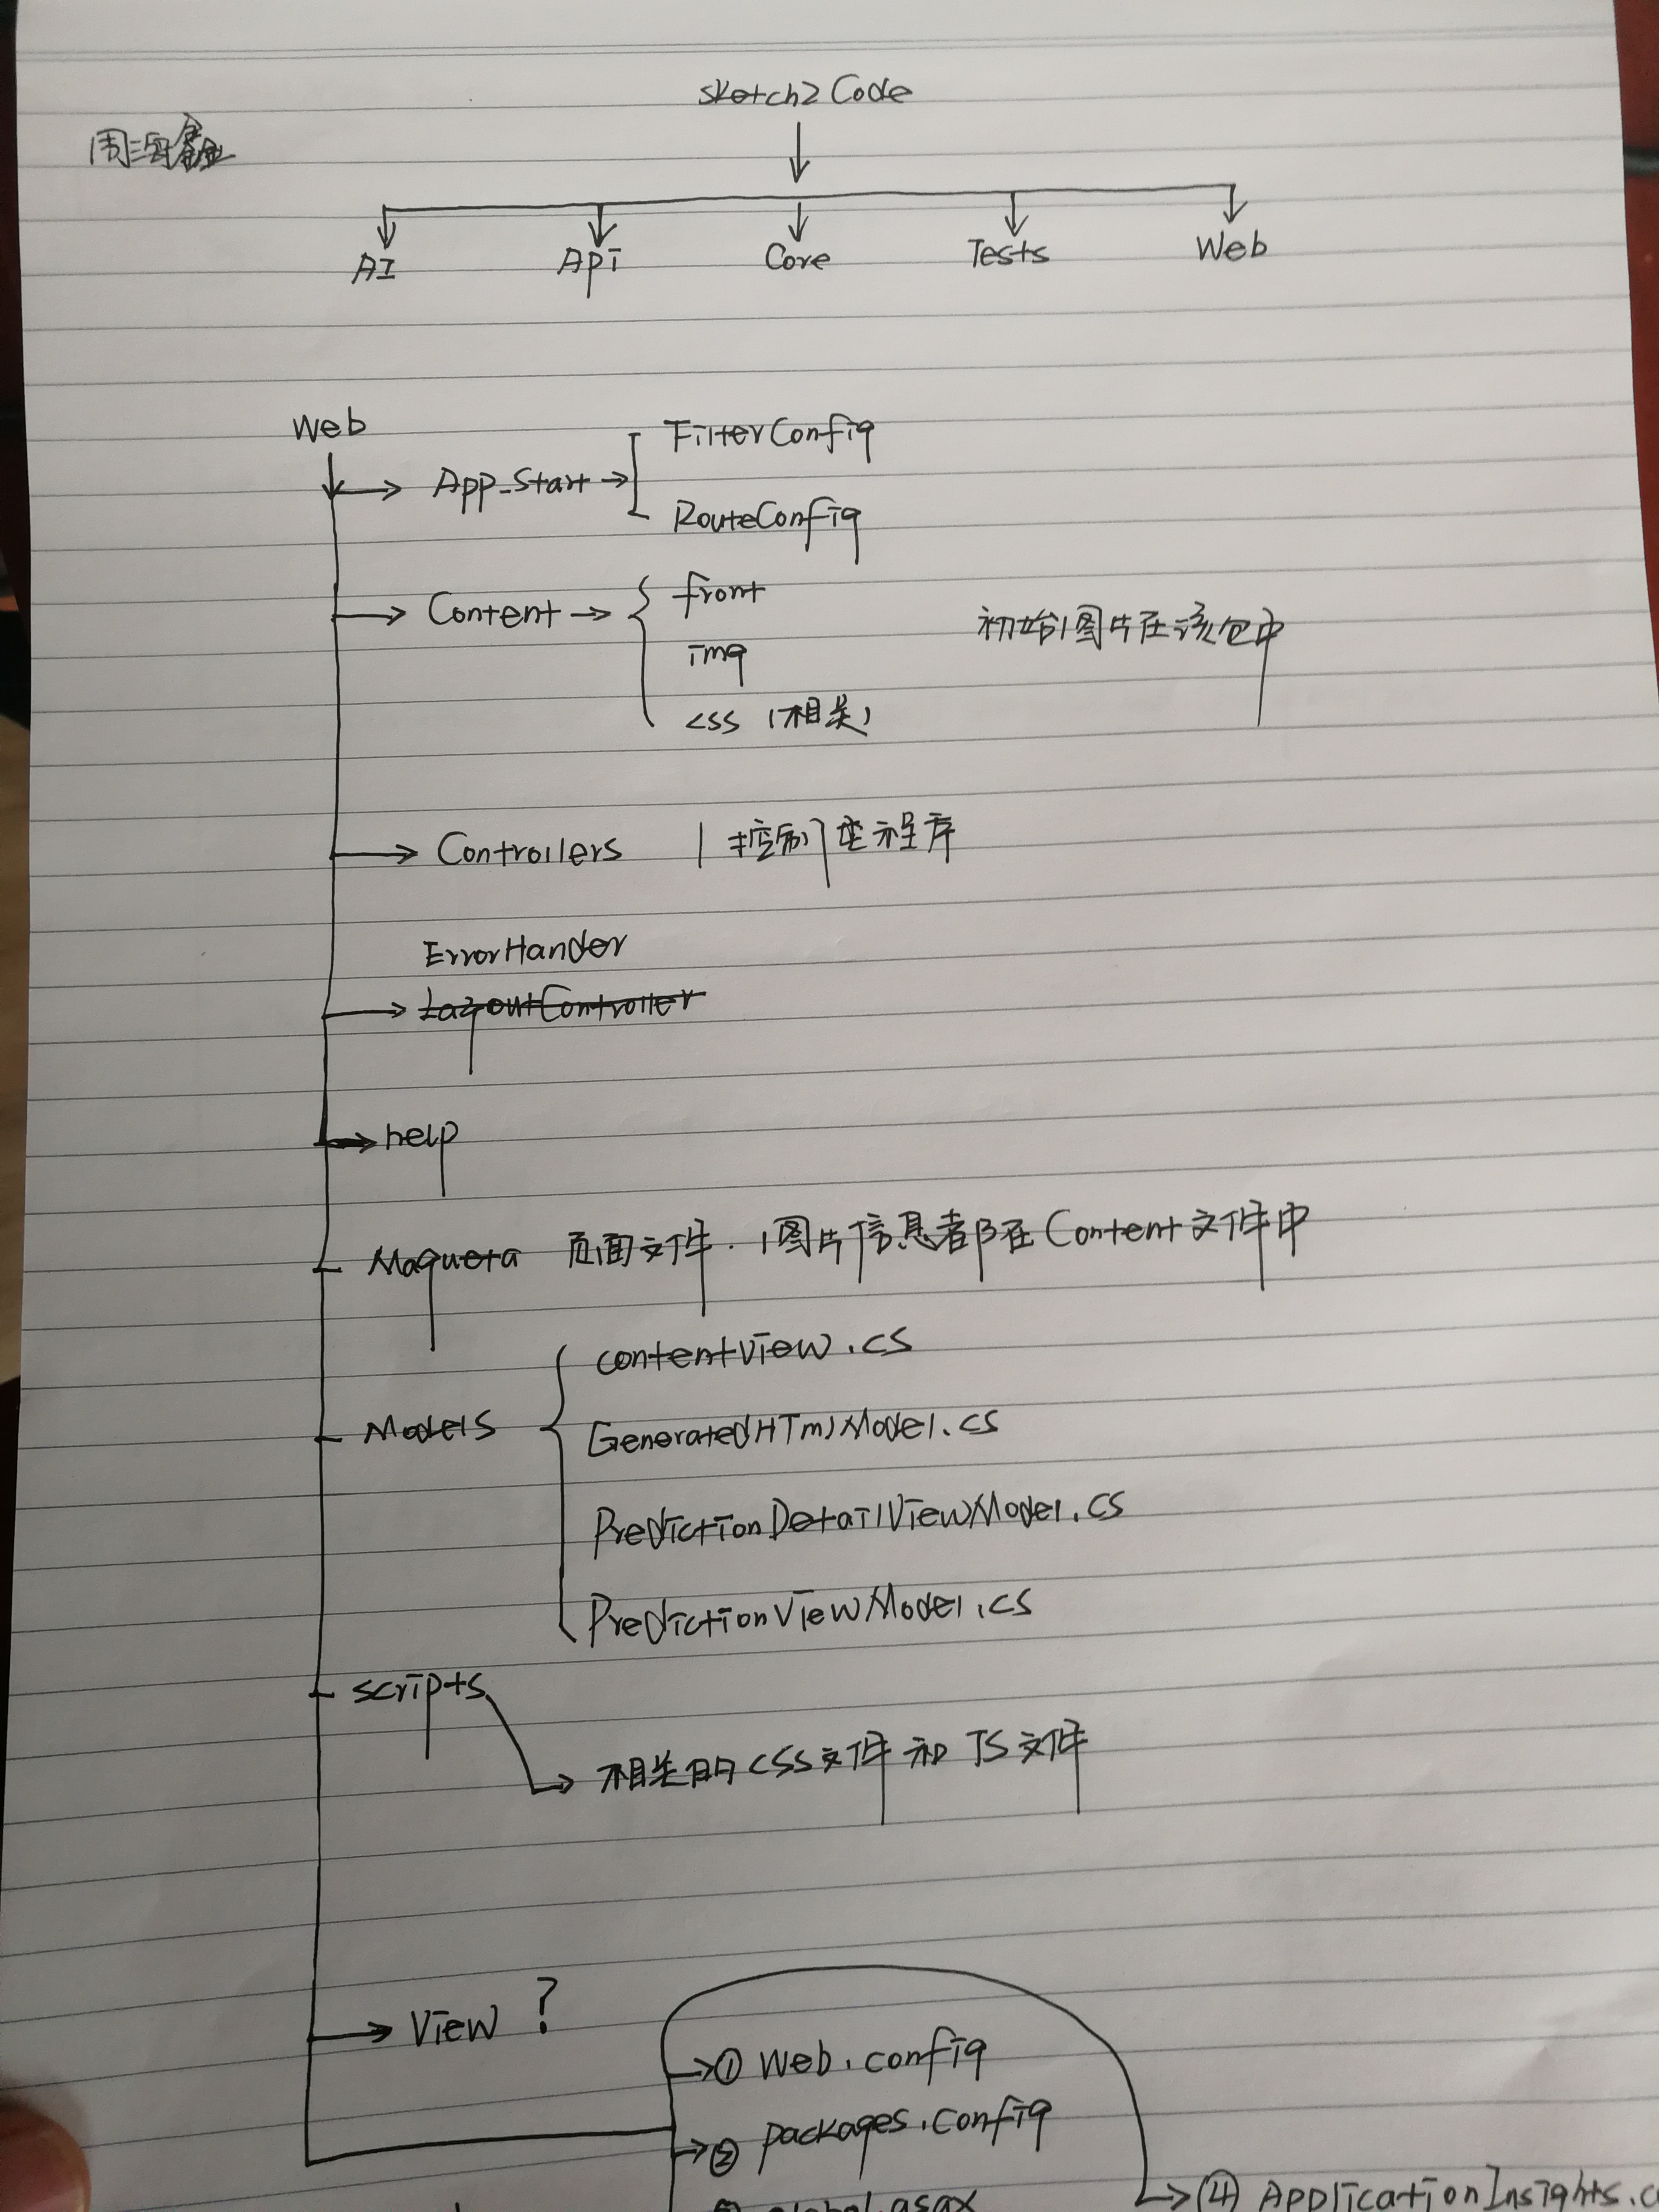 sketch2Code
周海鑫
AI API Core Tests Web
Web
App_Start FilterConfig
RouteConfig
Content front
img
css (相关)
初始图片在该包中
Controllers 控制类程序
ErrorHander
LayoutController
help
Maqueta 页面文件. 图片信息都在Content文件中
Models contentView.cs
GeneratedHTmlModel.cs
PredictionDetailViewModel.cs
PredictionViewModel.cs
scripts
相关的CSS文件和JS文件
View ?
① Web.config
② packages.config
global.asax
④ ApplicationInsights.c